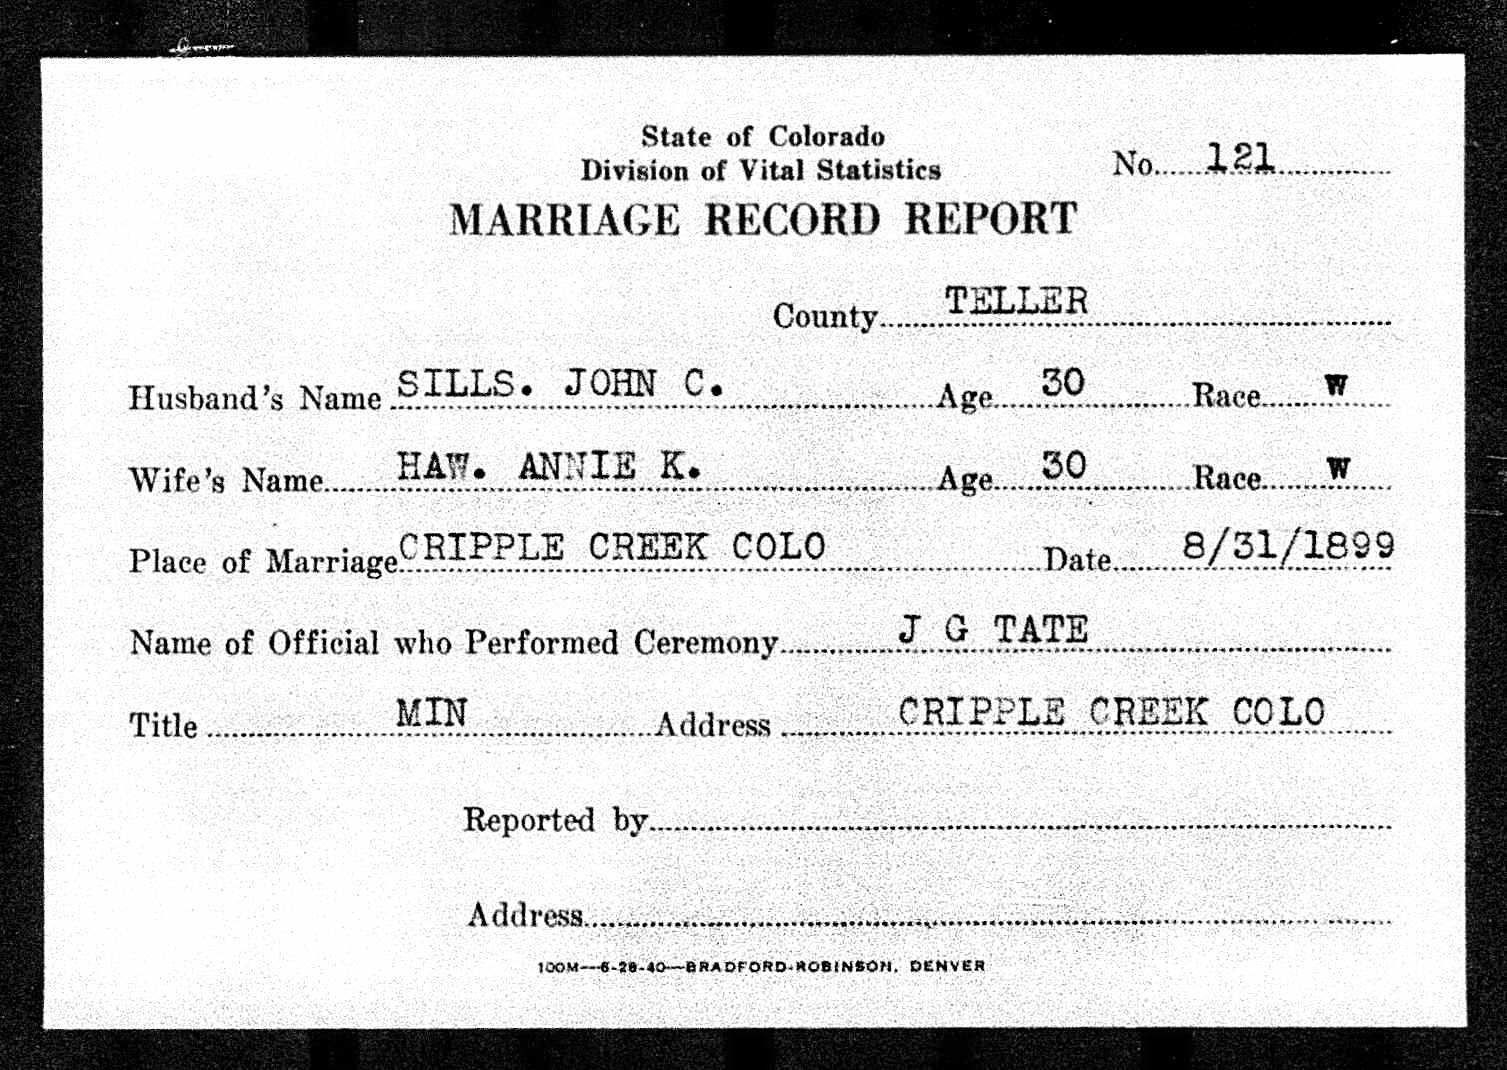 State of Colorado
Division of Vital Statistics
No. 121
MARRIAGE RECORD REPORT
County TELLER
Husband's Name SILLS. JOHN C. Age 30 Race W
Wife's Name HAW. ANNIE K. Age 30 Race W
Place of Marriage CRIPPLE CREEK COLO Date 8/31/1899
Name of Official who Performed Ceremony J G TATE
Title MIN Address CRIPPLE CREEK COLO
Reported by
Address
100M—6-28-40—BRADFORD-ROBINSON, DENVER